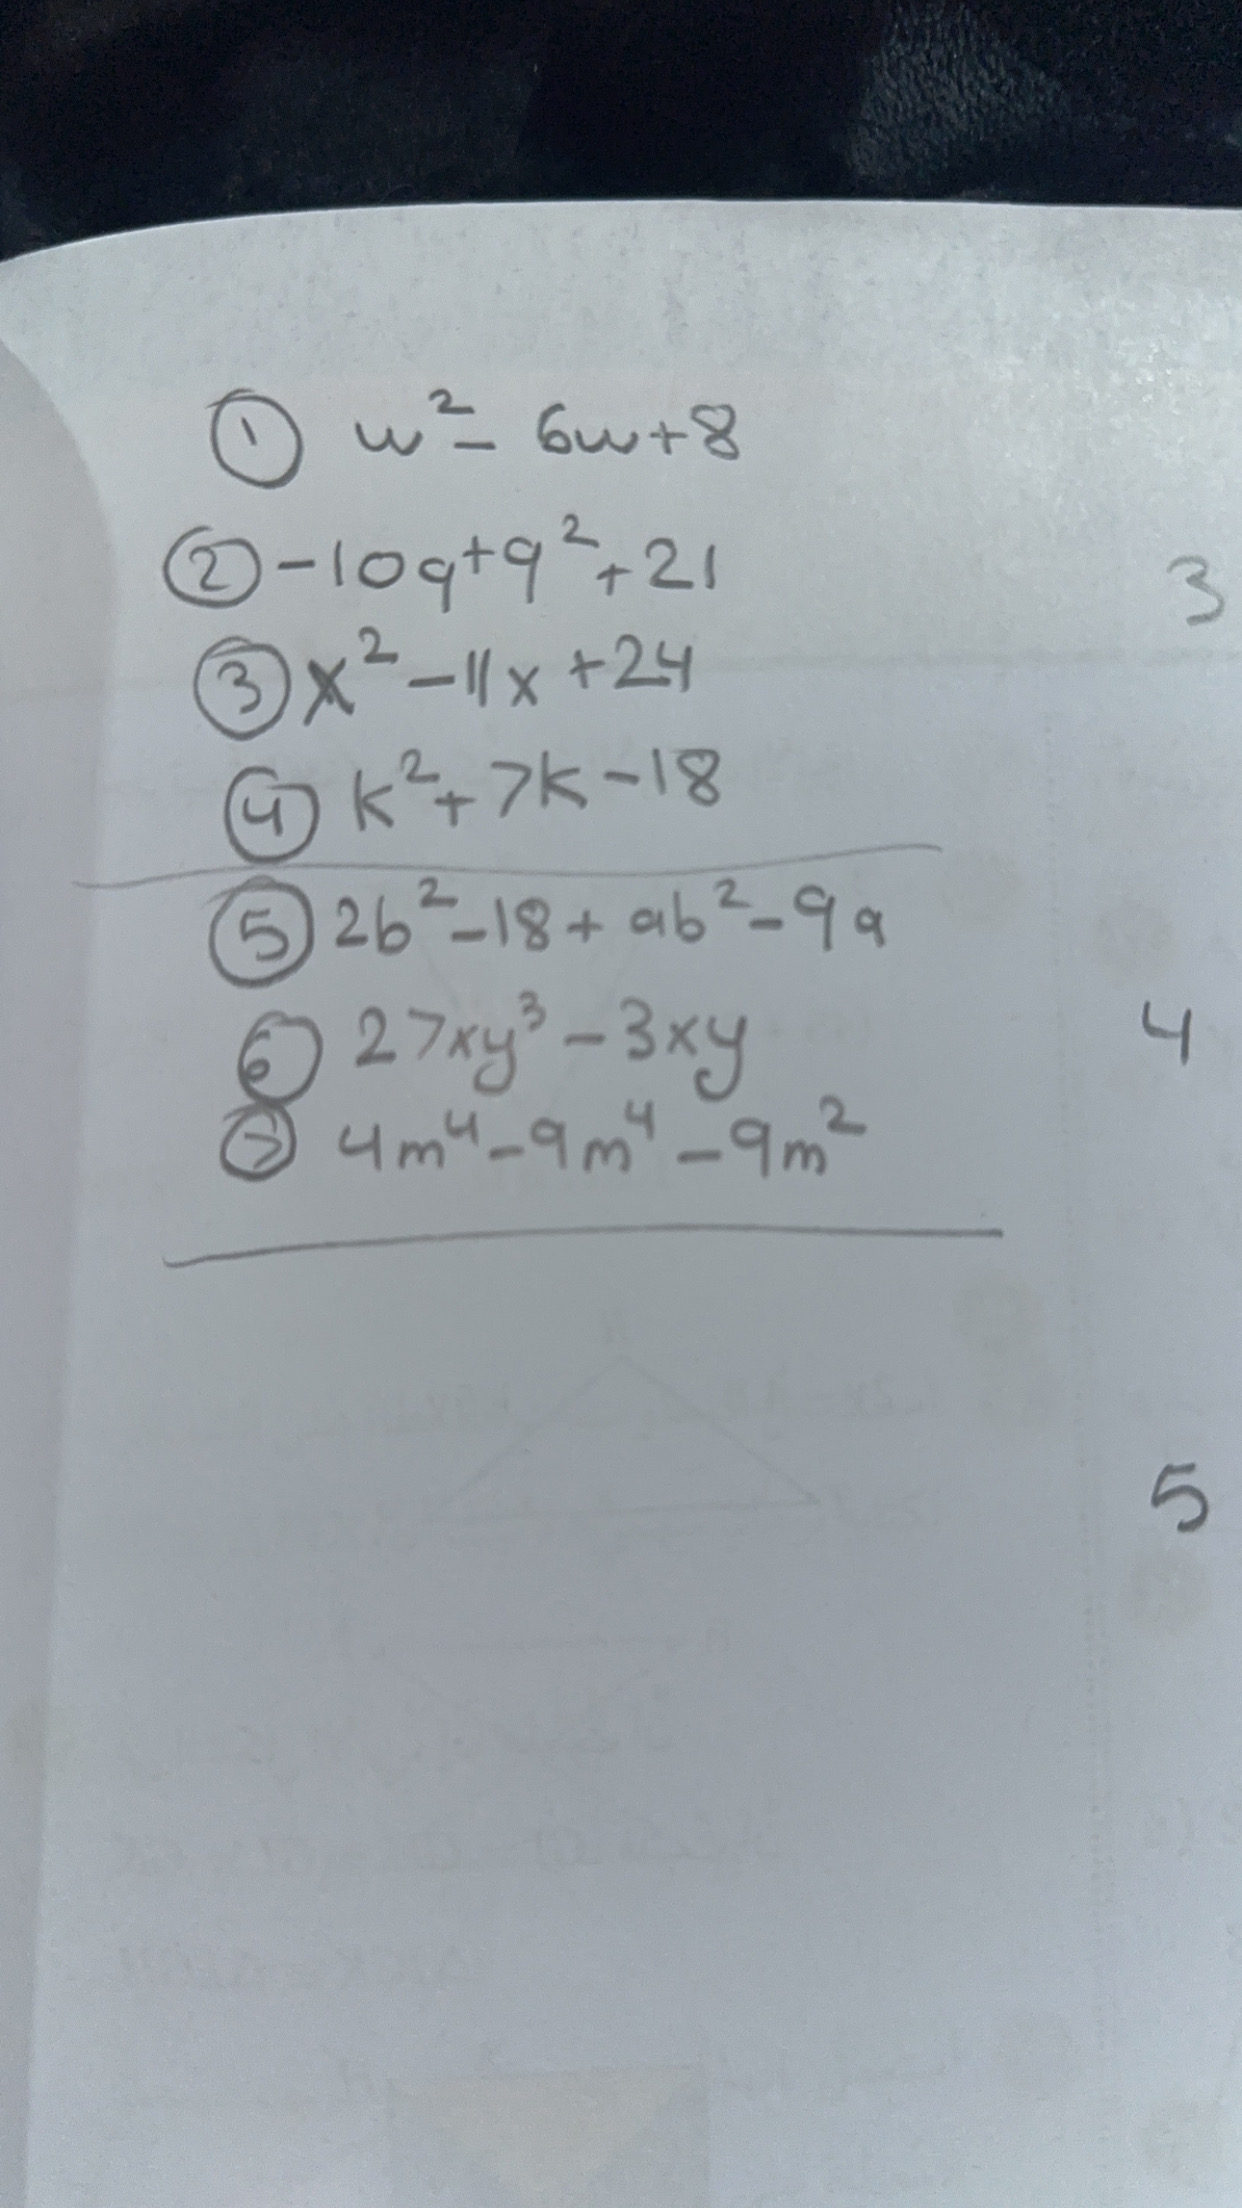 ① w² - 6w+8
② -10q+q²+21
3
③ x² -11x +24
④ k²+7k-18
⑤ 2b²-18+ab²-9a
⑥ 27xy³-3xy
4
⑦ 4m⁴-9m⁴-9m²
5